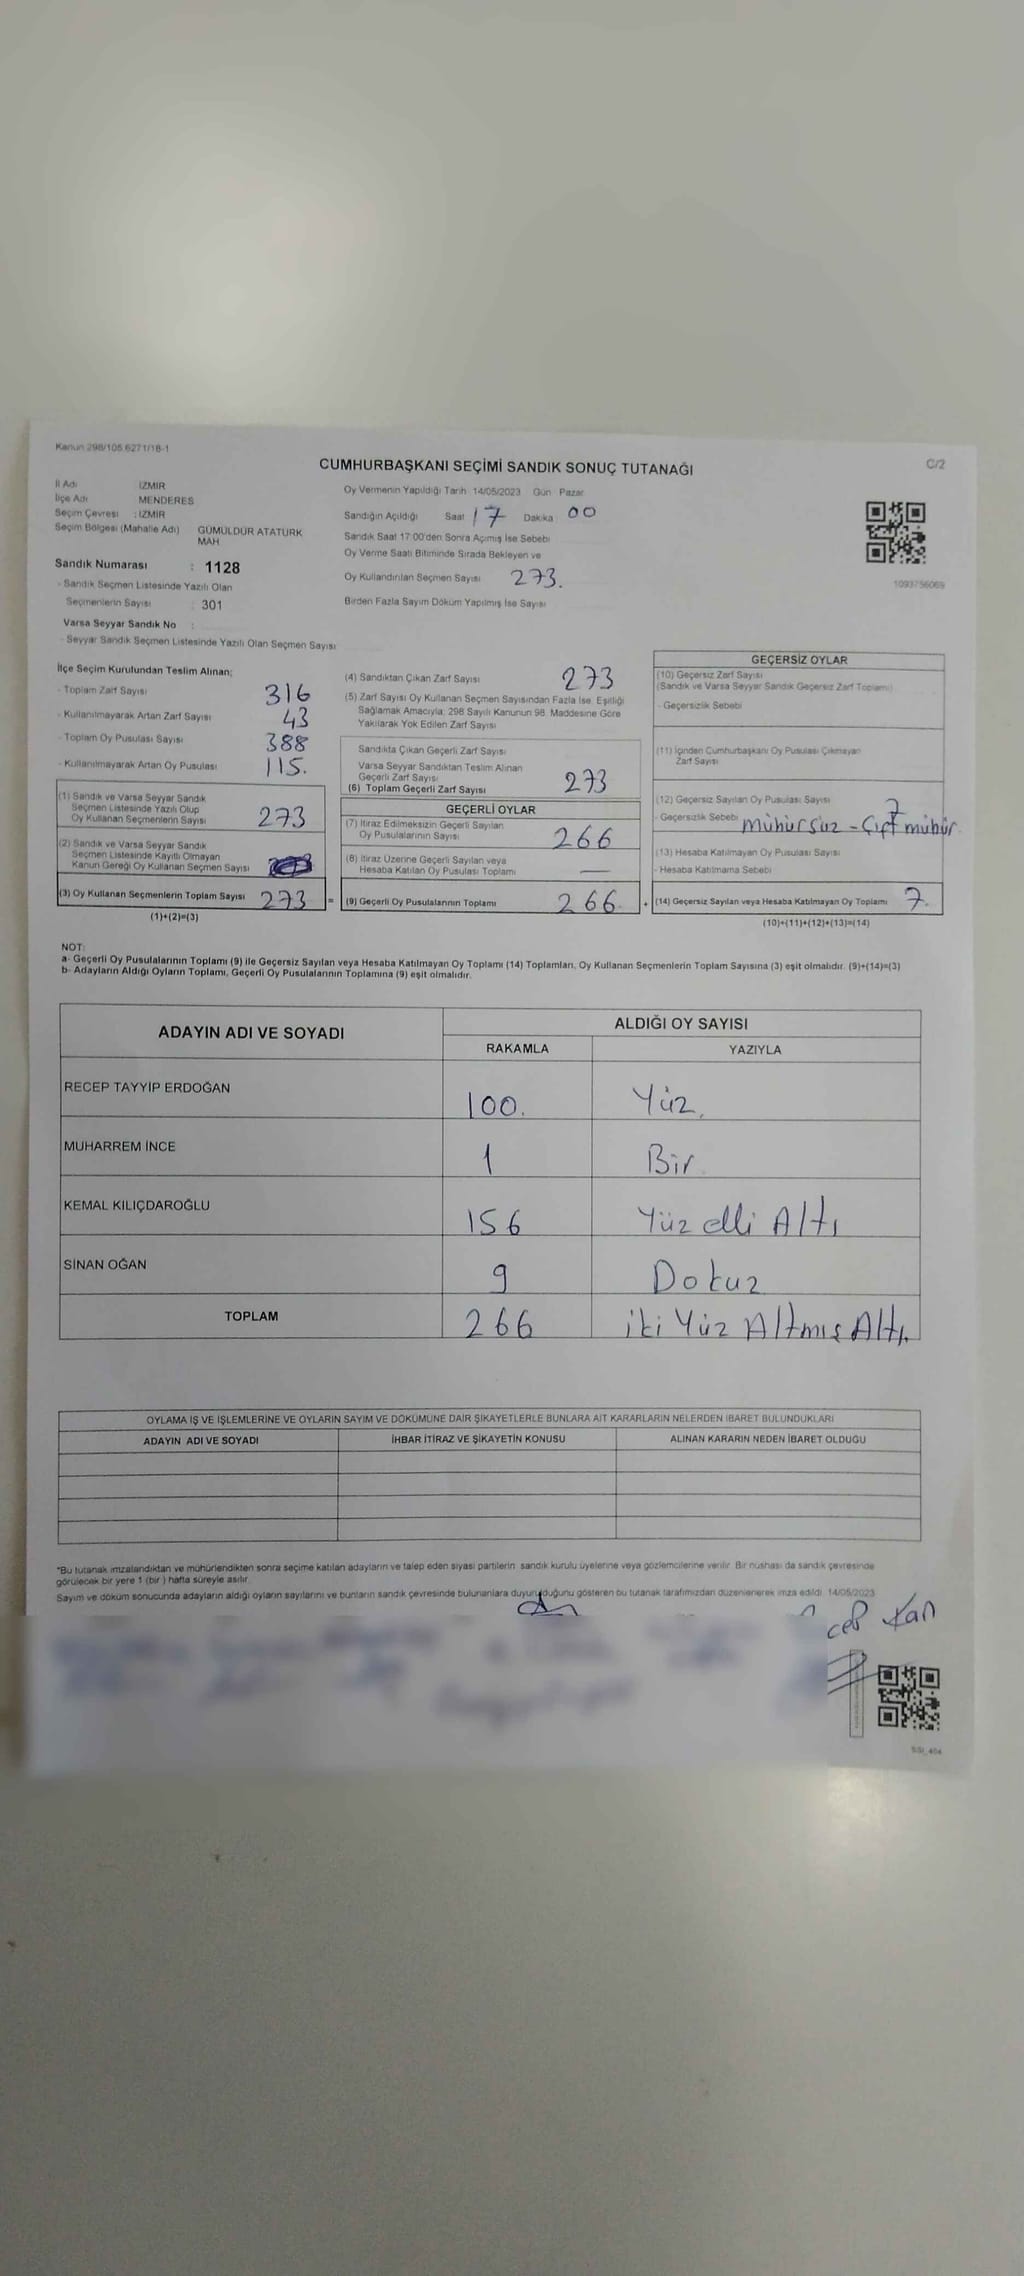 Kanun 298/105 6271/18-1
C/2
CUMHURBAŞKANI SEÇİMİ SANDIK SONUÇ TUTANAĞI
İl Adı : İZMİR
İlçe Adı : MENDERES
Seçim Çevresi : İZMİR
Seçim Bölgesi (Mahalle Adı) GÜMÜLDÜR ATATÜRK MAH
Sandık Numarası : 1128
- Sandık Seçmen Listesinde Yazılı Olan
Seçmenlerin Sayısı : 301
Varsa Seyyar Sandık No :
- Seyyar Sandık Seçmen Listesinde Yazılı Olan Seçmen Sayısı
Oy Vermenin Yapıldığı Tarih 14/05/2023 Gün Pazar
Sandığın Açıldığı Saat 17 Dakika 00
Sandık Saat 17:00'den Sonra Açımış İse Sebebi
Oy Verme Saati Bitiminde Sırada Bekleyen ve
Oy Kullandırılan Seçmen Sayısı 273.
Birden Fazla Sayım Döküm Yapılmış İse Sayısı
1093756069
İlçe Seçim Kurulundan Teslim Alınan;
- Toplam Zarf Sayısı 316
- Kullanılmayarak Artan Zarf Sayısı 43
- Toplam Oy Pusulası Sayısı 388
- Kullanılmayarak Artan Oy Pusulası 115.
(1) Sandık ve Varsa Seyyar Sandık
Seçmen Listesinde Yazılı Olup
Oy Kullanan Seçmenlerin Sayısı 273
(2) Sandık ve Varsa Seyyar Sandık
Seçmen Listesinde Kayıtlı Olmayan
Kanun Gereği Oy Kullanan Seçmen Sayısı
(3) Oy Kullanan Seçmenlerin Toplam Sayısı 273 =
(1)+(2)=(3)
(4) Sandıktan Çıkan Zarf Sayısı 273
(5) Zarf Sayısı Oy Kullanan Seçmen Sayısından Fazla İse, Eşitliği
Sağlamak Amacıyla, 298 Sayılı Kanunun 98. Maddesine Göre
Yakılarak Yok Edilen Zarf Sayısı
Sandıkta Çıkan Geçerli Zarf Sayısı
Varsa Seyyar Sandıktan Teslim Alınan
Geçerli Zarf Sayısı
(6) Toplam Geçerli Zarf Sayısı 273
GEÇERLİ OYLAR
(7) İtiraz Edilmeksizin Geçerli Sayılan
Oy Pusulalarının Sayısı 266
(8) İtiraz Üzerine Geçerli Sayılan veya
Hesaba Katılan Oy Pusulası Toplamı —
(9) Geçerli Oy Pusulalarının Toplamı 266 +
GEÇERSİZ OYLAR
(10) Geçersiz Zarf Sayısı
(Sandık ve Varsa Seyyar Sandık Geçersiz Zarf Toplamı)
- Geçersizlik Sebebi
(11) İçinden Cumhurbaşkanı Oy Pusulası Çıkmayan
Zarf Sayısı
(12) Geçersiz Sayılan Oy Pusulası Sayısı 7
- Geçersizlik Sebebi mühürsüz - Çift mühür
(13) Hesaba Katılmayan Oy Pusulası Sayısı
- Hesaba Katılmama Sebebi
(14) Geçersiz Sayılan veya Hesaba Katılmayan Oy Toplamı 7.
(10)+(11)+(12)+(13)=(14)
NOT:
a- Geçerli Oy Pusulalarının Toplamı (9) ile Geçersiz Sayılan veya Hesaba Katılmayan Oy Toplamı (14) Toplamları, Oy Kullanan Seçmenlerin Toplam Sayısına (3) eşit olmalıdır. (9)+(14)=(3)
b- Adayların Aldığı Oyların Toplamı, Geçerli Oy Pusulalarının Toplamına (9) eşit olmalıdır.
ADAYIN ADI VE SOYADI ALDIĞI OY SAYISI
RAKAMLA YAZIYLA
RECEP TAYYİP ERDOĞAN 100. Yüz.
MUHARREM İNCE 1 Bir.
KEMAL KILIÇDAROĞLU 156 Yüz elli Altı
SİNAN OĞAN 9 Dokuz
TOPLAM 266 iki Yüz Altmış Altı.
OYLAMA İŞ VE İŞLEMLERİNE VE OYLARIN SAYIM VE DÖKÜMÜNE DAİR ŞİKAYETLERLE BUNLARA AİT KARARLARIN NELERDEN İBARET BULUNDUKLARI
ADAYIN ADI VE SOYADI İHBAR İTİRAZ VE ŞİKAYETİN KONUSU ALINAN KARARIN NEDEN İBARET OLDUĞU
*Bu tutanak imzalandıktan ve mühürlendikten sonra seçime katılan adayların ve talep eden siyasi partilerin sandık kurulu üyelerine veya gözlemcilerine verilir. Bir nüshası da sandık çevresinde
görülecek bir yere 1 (bir ) hafta süreyle asılır.
Sayım ve döküm sonucunda adayların aldığı oyların sayılarını ve bunların sandık çevresinde bulunanlara duyurulduğunu gösteren bu tutanak tarafımızdan düzenlenerek imza edildi. 14/05/2023